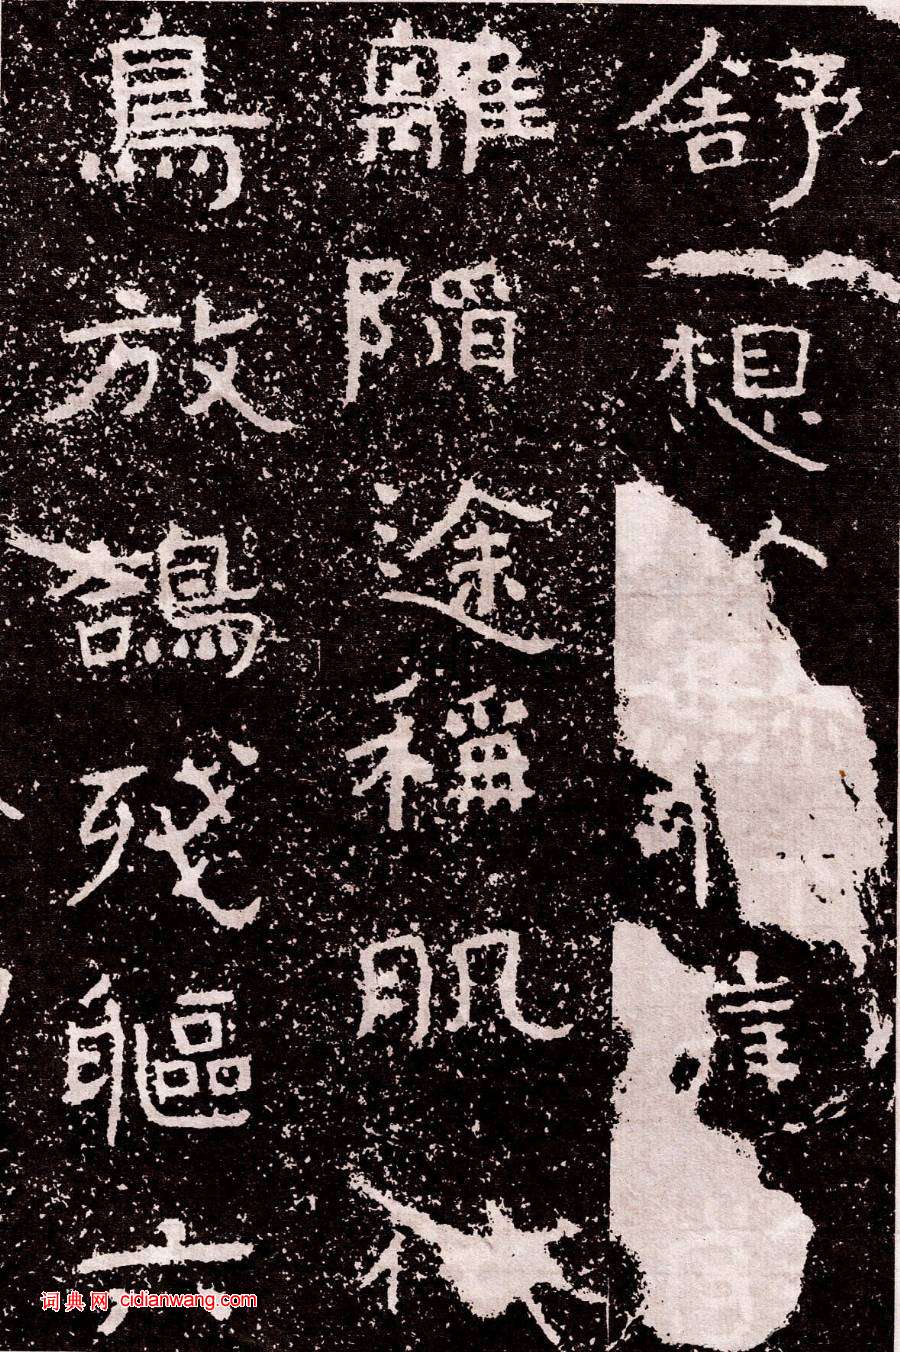 舒想
離陷途稱肌
鳥放鴿殘軀六
词典网 cidianwang.com